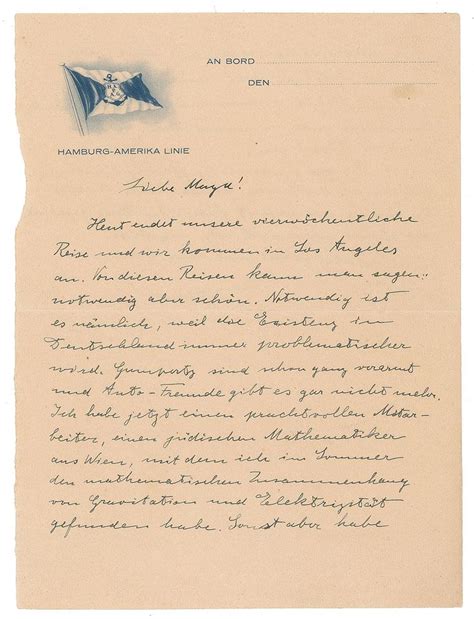 AN BORD
DEN
HAPAG
HAMBURG-AMERIKA LINIE
Liebe Maya!
Heut endet unsere vierwöchentliche
Reise und wir kommen in Los Angeles
an. Von diesen Reisen kann man sagen:
notwendig aber schön. Notwendig ist
es nämlich, weil die Existenz in
Deutschland immer problematischer
wird. Gumpertz sind schon ganz verarmt
und Auto-Freunde gibt es gar nicht mehr.
Ich habe jetzt einen prachtvollen Mitar-
beiter, einen jüdischen Mathematiker
aus Wien, mit dem ich im Sommer
den mathematischen Zusammenhang
von Gravitation und Elektrizität
gefunden habe. Sonst aber habe